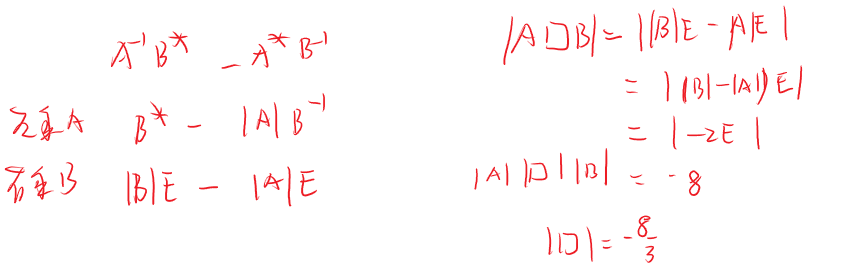 A⁻¹B* - A*B⁻¹
左乘A B* - |A|B⁻¹
右乘B |B|E - |A|E
|ADB| = ||B|E - |A|E|
= |(|B|-|A|)E|
= |-2E|
|A||D||B| = -8
|D| = -8/3